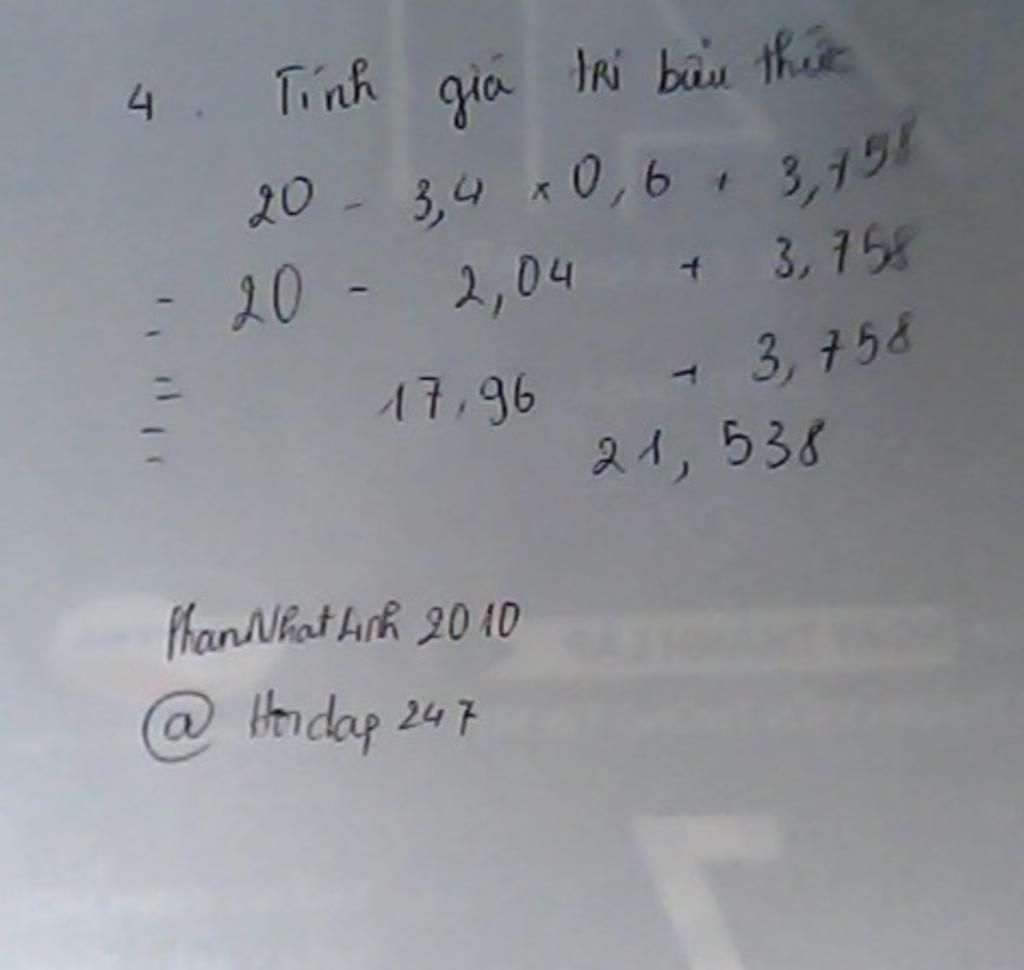 4. Tính giá trị biểu thức
20 - 3,4 × 0,6 + 3,758
= 20 - 2,04 + 3,758
= 17,96 + 3,758
= 21,538
PhanNhatLinh 2010
@ Hoidap 247